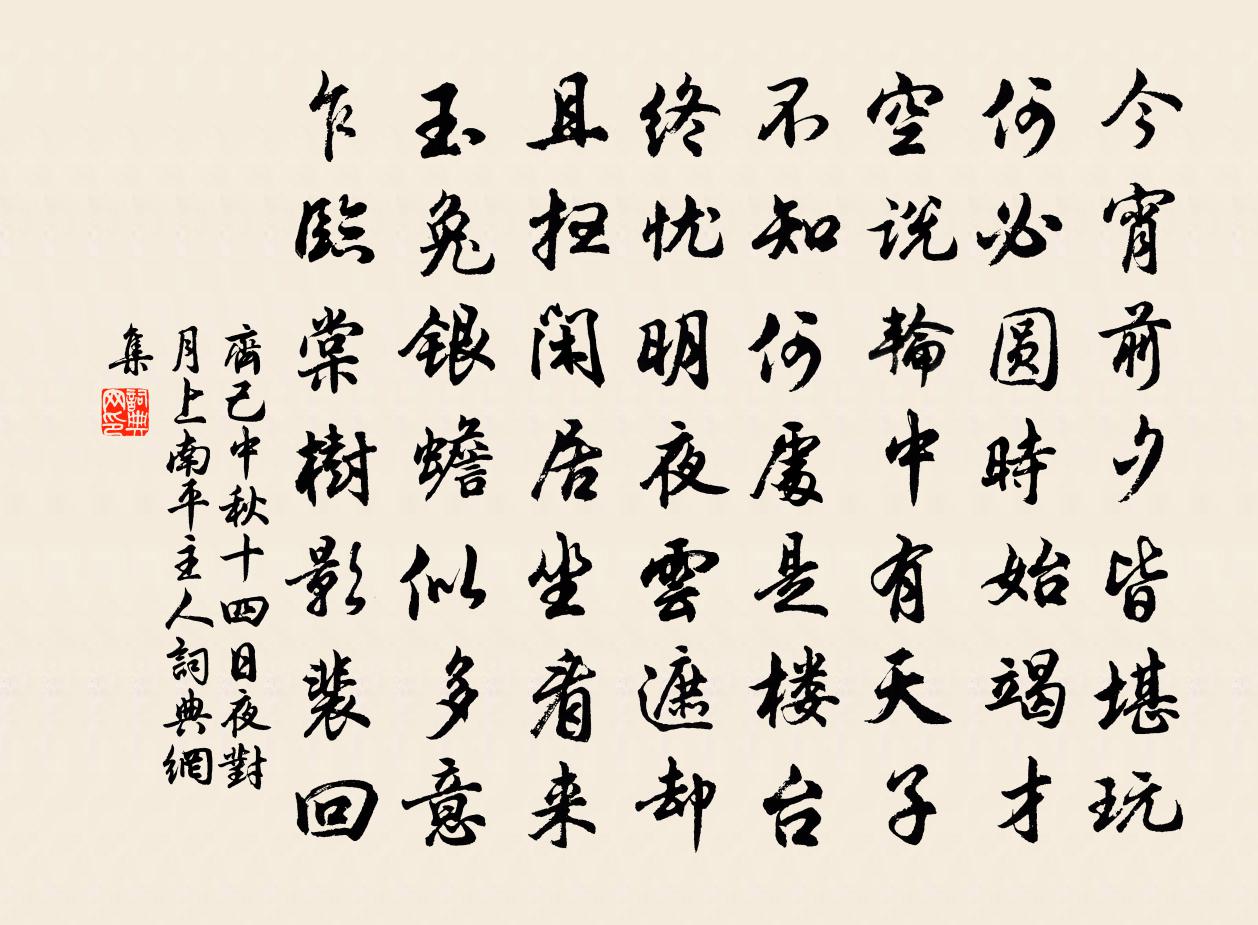 今宵前夕皆堪玩
何必圆時始竭才
空说輪中有天子
不知何處是楼台
终忧明夜雲遮却
且扫闲居坐看来
玉兔银蟾似多意
乍臨棠樹影裴回
齊己中秋十四日夜對
月上南平主人詞典網
集
詞典
网印